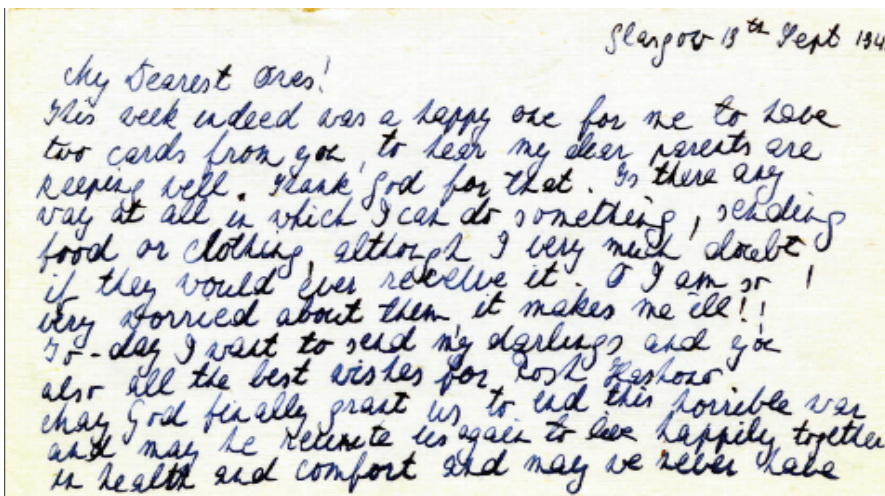 Glasgow 13th Sept 194
My Dearest Ones!
This week indeed was a happy one for me to have
two cards from you, to hear my dear parents are
keeping well. Thank God for that. Is there any
way at all in which I can do something, sending
food or clothing, although I very much doubt
if they would ever receive it. O I am so !
very worried about them it makes me ill!!
To-day I want to send my darlings and you
also all the best wishes for Rosh Hashono
May God finally grant us to end this horrible war
and may he reunite us again to live happily together
in health and comfort and may we never have